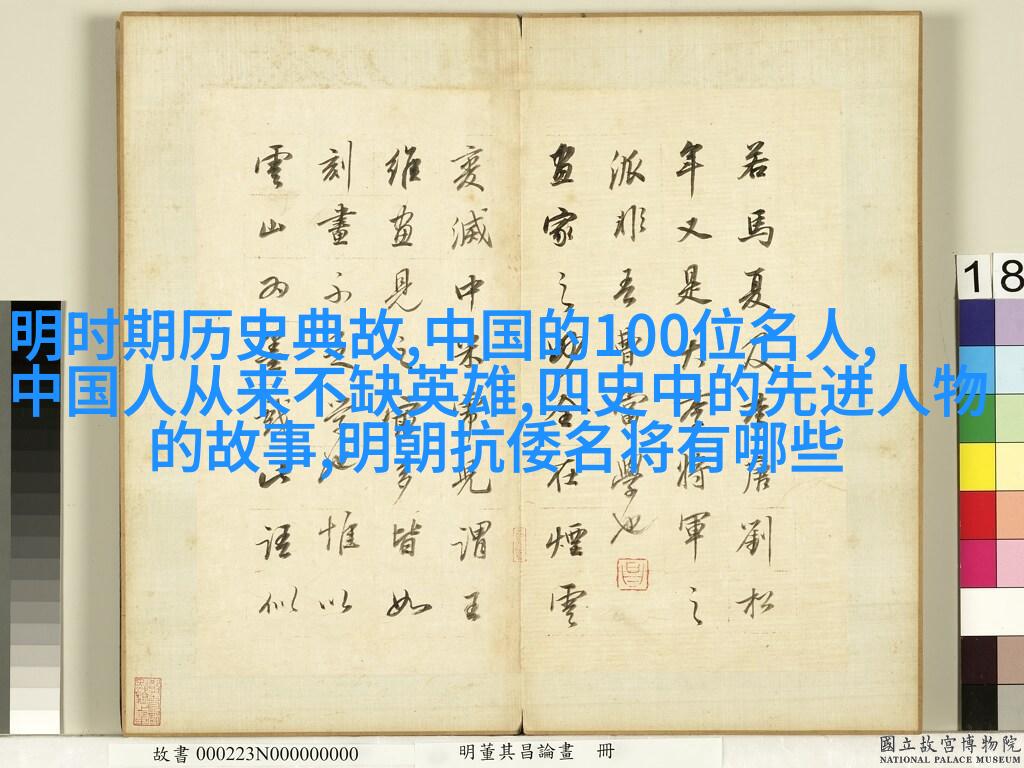 若馬夏及李唐劉松
年又是大李將軍之
派非吾曹當學也
畫家之妙全在煙雲
變滅中米虎兒謂王
維畫見之多皆如
刻畫不足學也惟以
雲山為墨戲此語似
明时期历史典故,中国的100位名人,
中国人从来不缺英雄,四史中的先进人物
的故事,明朝抗倭名将有哪些
18
故書 000223N000000000
明董其昌論畫 冊
國立故宮博物院
NATIONAL PALACE MUSEUM